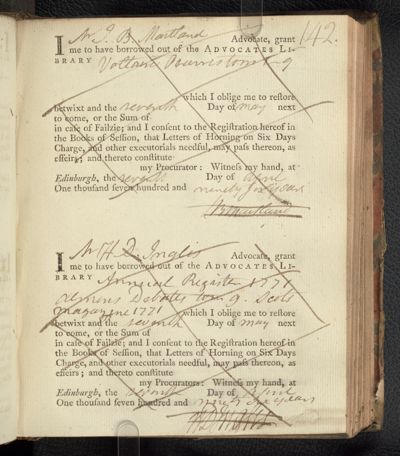 142.
I Mr J. B. Maitland Advocate, grant
me to have borrowed out of the ADVOCATES LI-
BRARY Voltaire tom. 9
which I oblige me to reſtore
betwixt and the seventh Day of may next
to come, or the Sum of
in caſe of Failzie; and I conſent to the Regiſtration hereof in
the Books of Seſſion, that Letters of Horning on Six Days
Charge, and other executorials needful, may paſs thereon, as
effeirs; and thereto conſtitute
my Procurator: Witneſs my hand, at
Edinburgh, the seventh Day of April
One thouſand ſeven hundred and ninety
Maitland
I Mr H. D. Inglis Advocate, grant
me to have borrowed out of the ADVOCATES LI-
BRARY Annual Register 1771
Debates tom. 9. Scots
magazine 1771 which I oblige me to reſtore
betwixt and the seventh Day of may next
to come, or the Sum of
in caſe of Failzie; and I conſent to the Regiſtration hereof in
the Books of Seſſion, that Letters of Horning on Six Days
Charge, and other executorials needful, may paſs thereon, as
effeirs; and thereto conſtitute
my Procurators: Witneſs my hand, at
Edinburgh, the seventh Day of April
One thouſand ſeven hundred and ninety six years